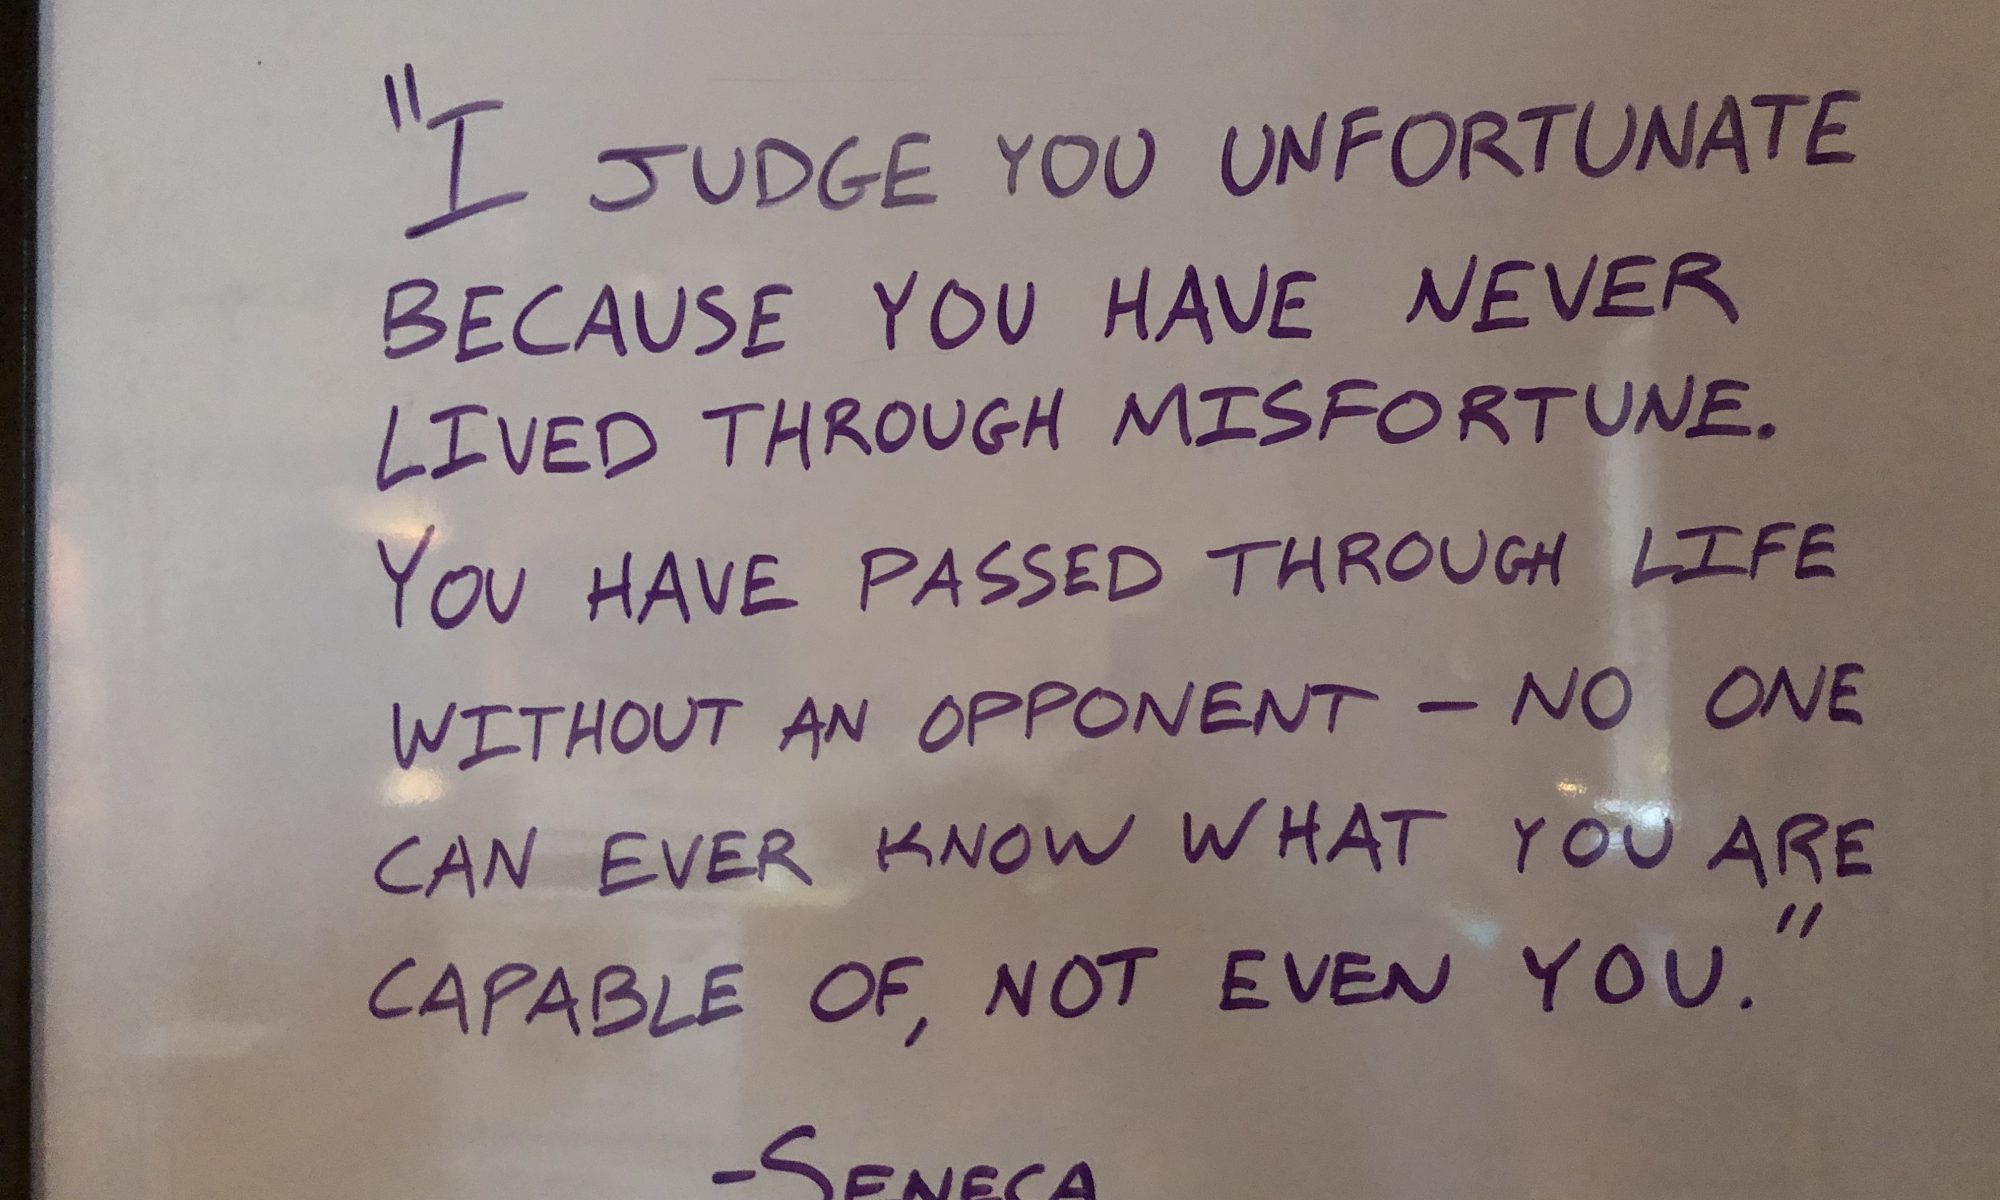 "I JUDGE YOU UNFORTUNATE
BECAUSE YOU HAVE NEVER
LIVED THROUGH MISFORTUNE.
YOU HAVE PASSED THROUGH LIFE
WITHOUT AN OPPONENT – NO ONE
CAN EVER KNOW WHAT YOU ARE
CAPABLE OF, NOT EVEN YOU."
-SENECA